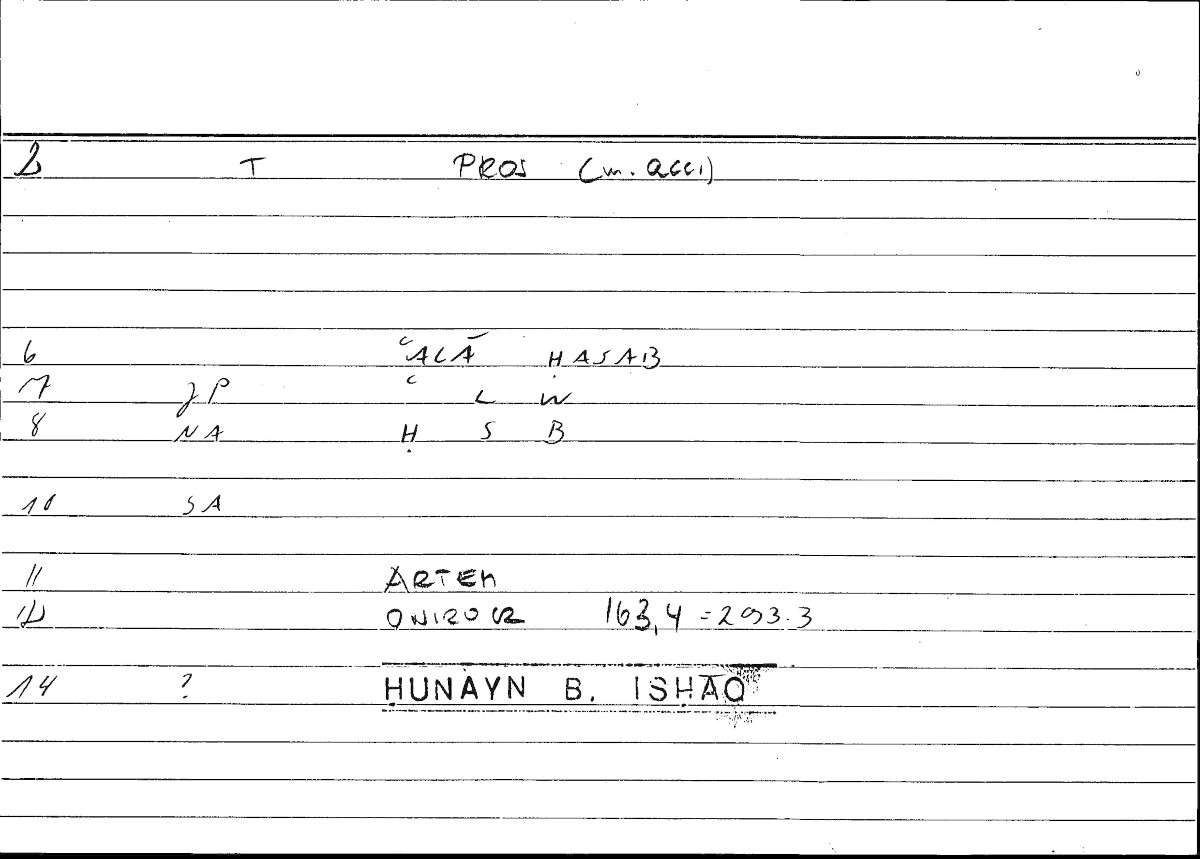 2 T PROS (m. acc.)
6 ʿALĀ ḤASAB
7 JP ʿ L W
8 NA Ḥ S B
10 SA
11 ARTEM
12 ONIROCR 163,4 = 293.3
14 ? ḤUNAYN B. ISḤĀQ